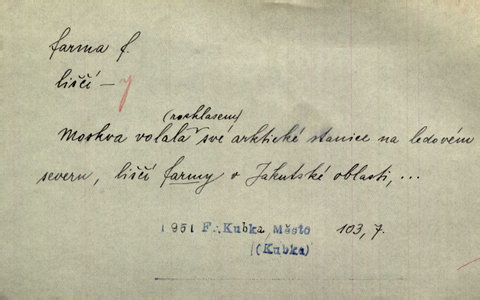 farma f.
liščí – y
(rozhlasem)
Moskva volala své arktické stanice na ledovém
severu, liščí farmy v Jakutské oblasti, ...
1951 F. Kubka, Město 103, 7.
(Kubka)